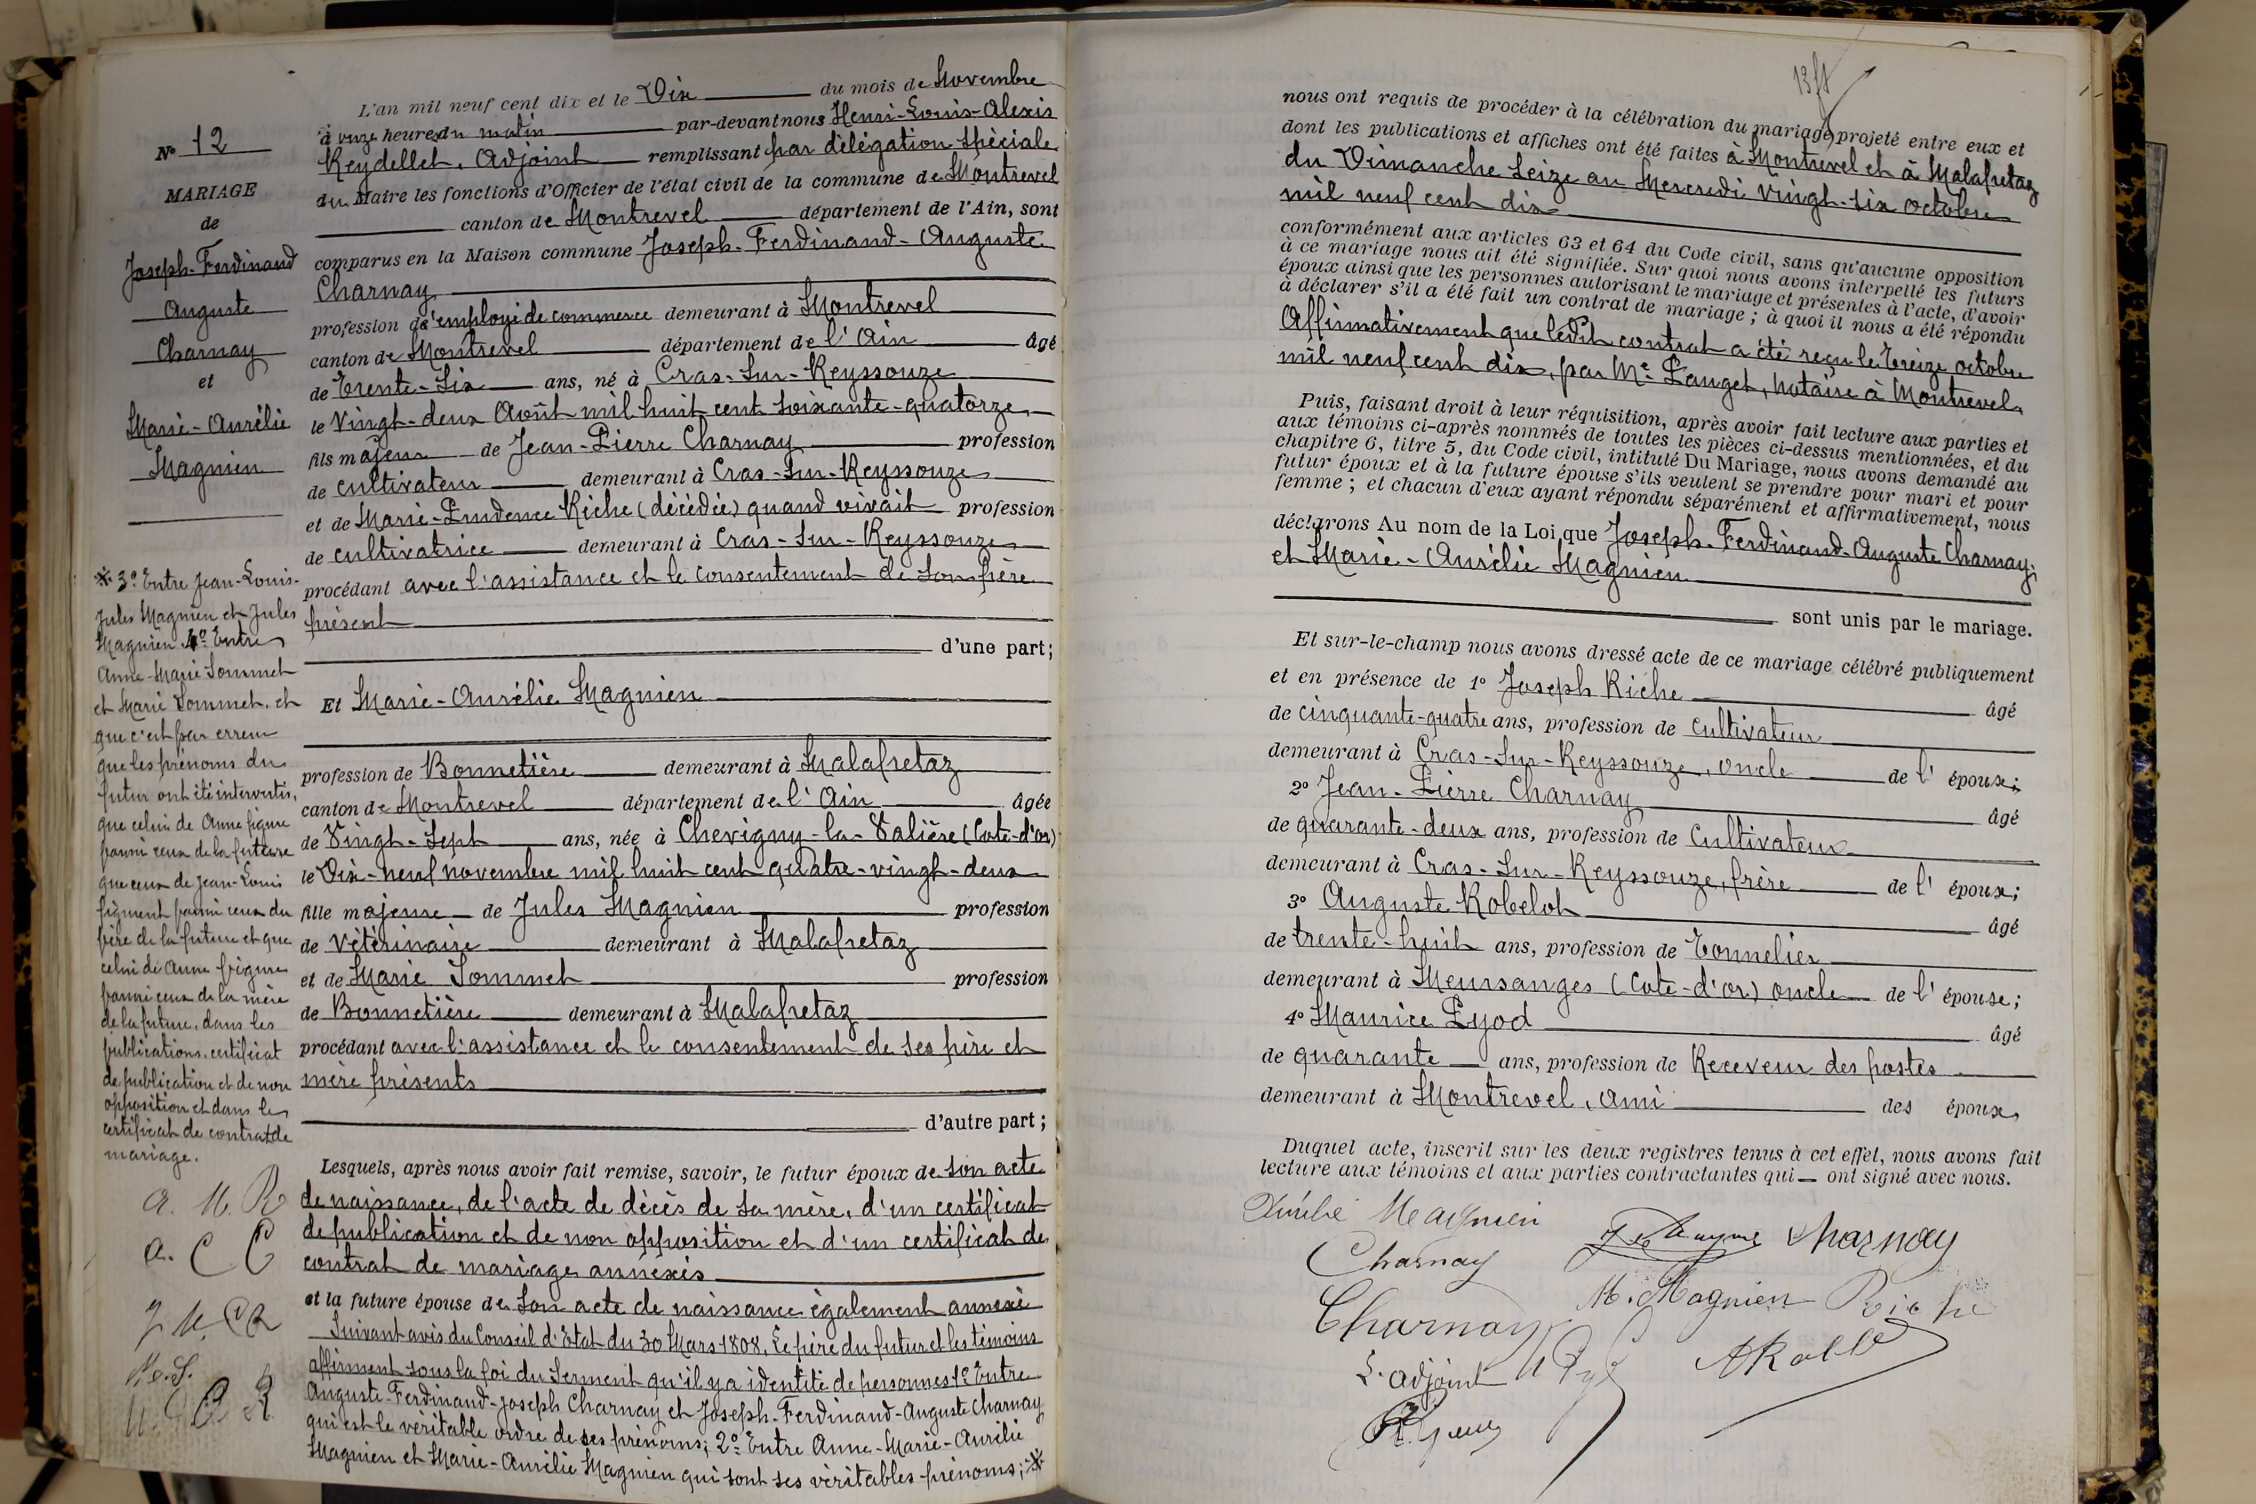 N° 12
MARIAGE
de
Joseph-Ferdinand
Auguste
Charnay
et
Marie-Aurélie
Magnien
* 3° Entre Jean-Louis-
Jules Magnien et Jules
Magnien 4° Entre
Anne-Marie Sommet
et Marie Sommet, et
que c'est par erreur
que les prénoms du
futur ont été intervertis,
que celui de Anne figure
parmi ceux de la future
que ceux de Jean-Louis
figurent parmi ceux du
père de la future et que
celui de Anne figure
parmi ceux de la mère
de la future, dans les
publications, certificat
de publication et de non
opposition et dans le
certificat de contrat de
mariage.
a. M. R
a. C C
L'an mil neuf cent dix et le Dix du mois de Novembre
à onze heures du matin par-devant nous Henri-Louis-Alexis
Reydellet, Adjoint remplissant par délégation spéciale
du Maire les fonctions d'Officier de l'état civil de la commune de Montrevel
canton de Montrevel département de l'Ain, sont
comparus en la Maison commune Joseph-Ferdinand-Auguste
Charnay
profession d'employé de commerce demeurant à Montrevel
canton de Montrevel département de l'Ain âgé
de Trente-Six ans, né à Cras-Sur-Reyssouze
le Vingt-deux Août mil huit cent soixante-quatorze,
fils majeur de Jean-Pierre Charnay profession
de cultivateur demeurant à Cras-Sur-Reyssouze
et de Marie-Prudence Riche (décédée) quand vivait profession
de cultivatrice demeurant à Cras-Sur-Reyssouze
procédant avec l'assistance et le consentement de son père
présent
d'une part;
Et Marie-Aurélie Magnien
profession de Bonnetière demeurant à Malafretaz
canton de Montrevel département de l'Ain âgée
de Vingt-Sept ans, née à Chevigny-la-Valière (Cote-d'or)
le Dix-neuf novembre mil huit cent quatre-vingt-deux
fille majeure de Jules Magnien profession
de vétérinaire demeurant à Malafretaz
et de Marie Sommet profession
de Bonnetière demeurant à Malafretaz
procédant avec l'assistance et le consentement de ses père et
mère présents
d'autre part;
Lesquels, après nous avoir fait remise, savoir, le futur époux de son acte
de naissance, de l'acte de décès de sa mère, d'un certificat
de publication et de non opposition et d'un certificat de
contrat de mariage annexés
et la future épouse de son acte de naissance également annexé
Suivant avis du Conseil d'Etat du 30 Mars 1808, Le père du futur et les témoins
affirment sous la foi du Serment qu'il y a identité de personnes 1° Entre
Auguste-Ferdinand-Joseph Charnay et Joseph-Ferdinand-Auguste Charnay
qui est le véritable ordre de ses prénoms; 2° Entre Anne-Marie-Aurélie
Magnien et Marie-Aurélie Magnien qui sont ses véritables prénoms; *
nous ont requis de procéder à la célébration du mariage projeté entre eux et
dont les publications et affiches ont été faites à Montrevel et à Malafretaz
du Dimanche Seize au Mercredi Vingt-six octobre
mil neuf cent dix
conformément aux articles 63 et 64 du Code civil, sans qu'aucune opposition
à ce mariage nous ait été signifiée. Sur quoi nous avons interpellé les futurs
époux ainsi que les personnes autorisant le mariage et présentes à l'acte, d'avoir
à déclarer s'il a été fait un contrat de mariage; à quoi il nous a été répondu
Affirmativement que ledit contrat a été reçu le Treize octobre
mil neuf cent dix, par Me Pauget, notaire à Montrevel,
Puis, faisant droit à leur réquisition, après avoir fait lecture aux parties et
aux témoins ci-après nommés de toutes les pièces ci-dessus mentionnées, et du
chapitre 6, titre 5, du Code civil, intitulé Du Mariage, nous avons demandé au
futur époux et à la future épouse s'ils veulent se prendre pour mari et pour
femme; et chacun d'eux ayant répondu séparément et affirmativement, nous
déclarons Au nom de la Loi, que Joseph-Ferdinand-Auguste Charnay,
et Marie-Aurélie Magnien
sont unis par le mariage.
Et sur-le-champ nous avons dressé acte de ce mariage célébré publiquement
et en présence de 1° Joseph Riche âgé
de cinquante-quatre ans, profession de cultivateur
demeurant à Cras-Sur-Reyssouze, oncle de l'époux;
2° Jean-Pierre Charnay âgé
de quarante-deux ans, profession de Cultivateur
demeurant à Cras-Sur-Reyssouze, frère de l'époux;
3° Auguste Robelot âgé
de trente-huit ans, profession de Tonnelier
demeurant à Meursanges (Cote-d'or) oncle de l'épouse;
4° Maurice Pyod âgé
de quarante ans, profession de Receveur des postes
demeurant à Montrevel, ami des époux,
Duquel acte, inscrit sur les deux registres tenus à cet effet, nous avons fait
lecture aux témoins et aux parties contractantes qui ont signé avec nous.
Aurélie Magnien
Charnay
Charnay
M. Magnien Riche
Charnay
L'adjoint